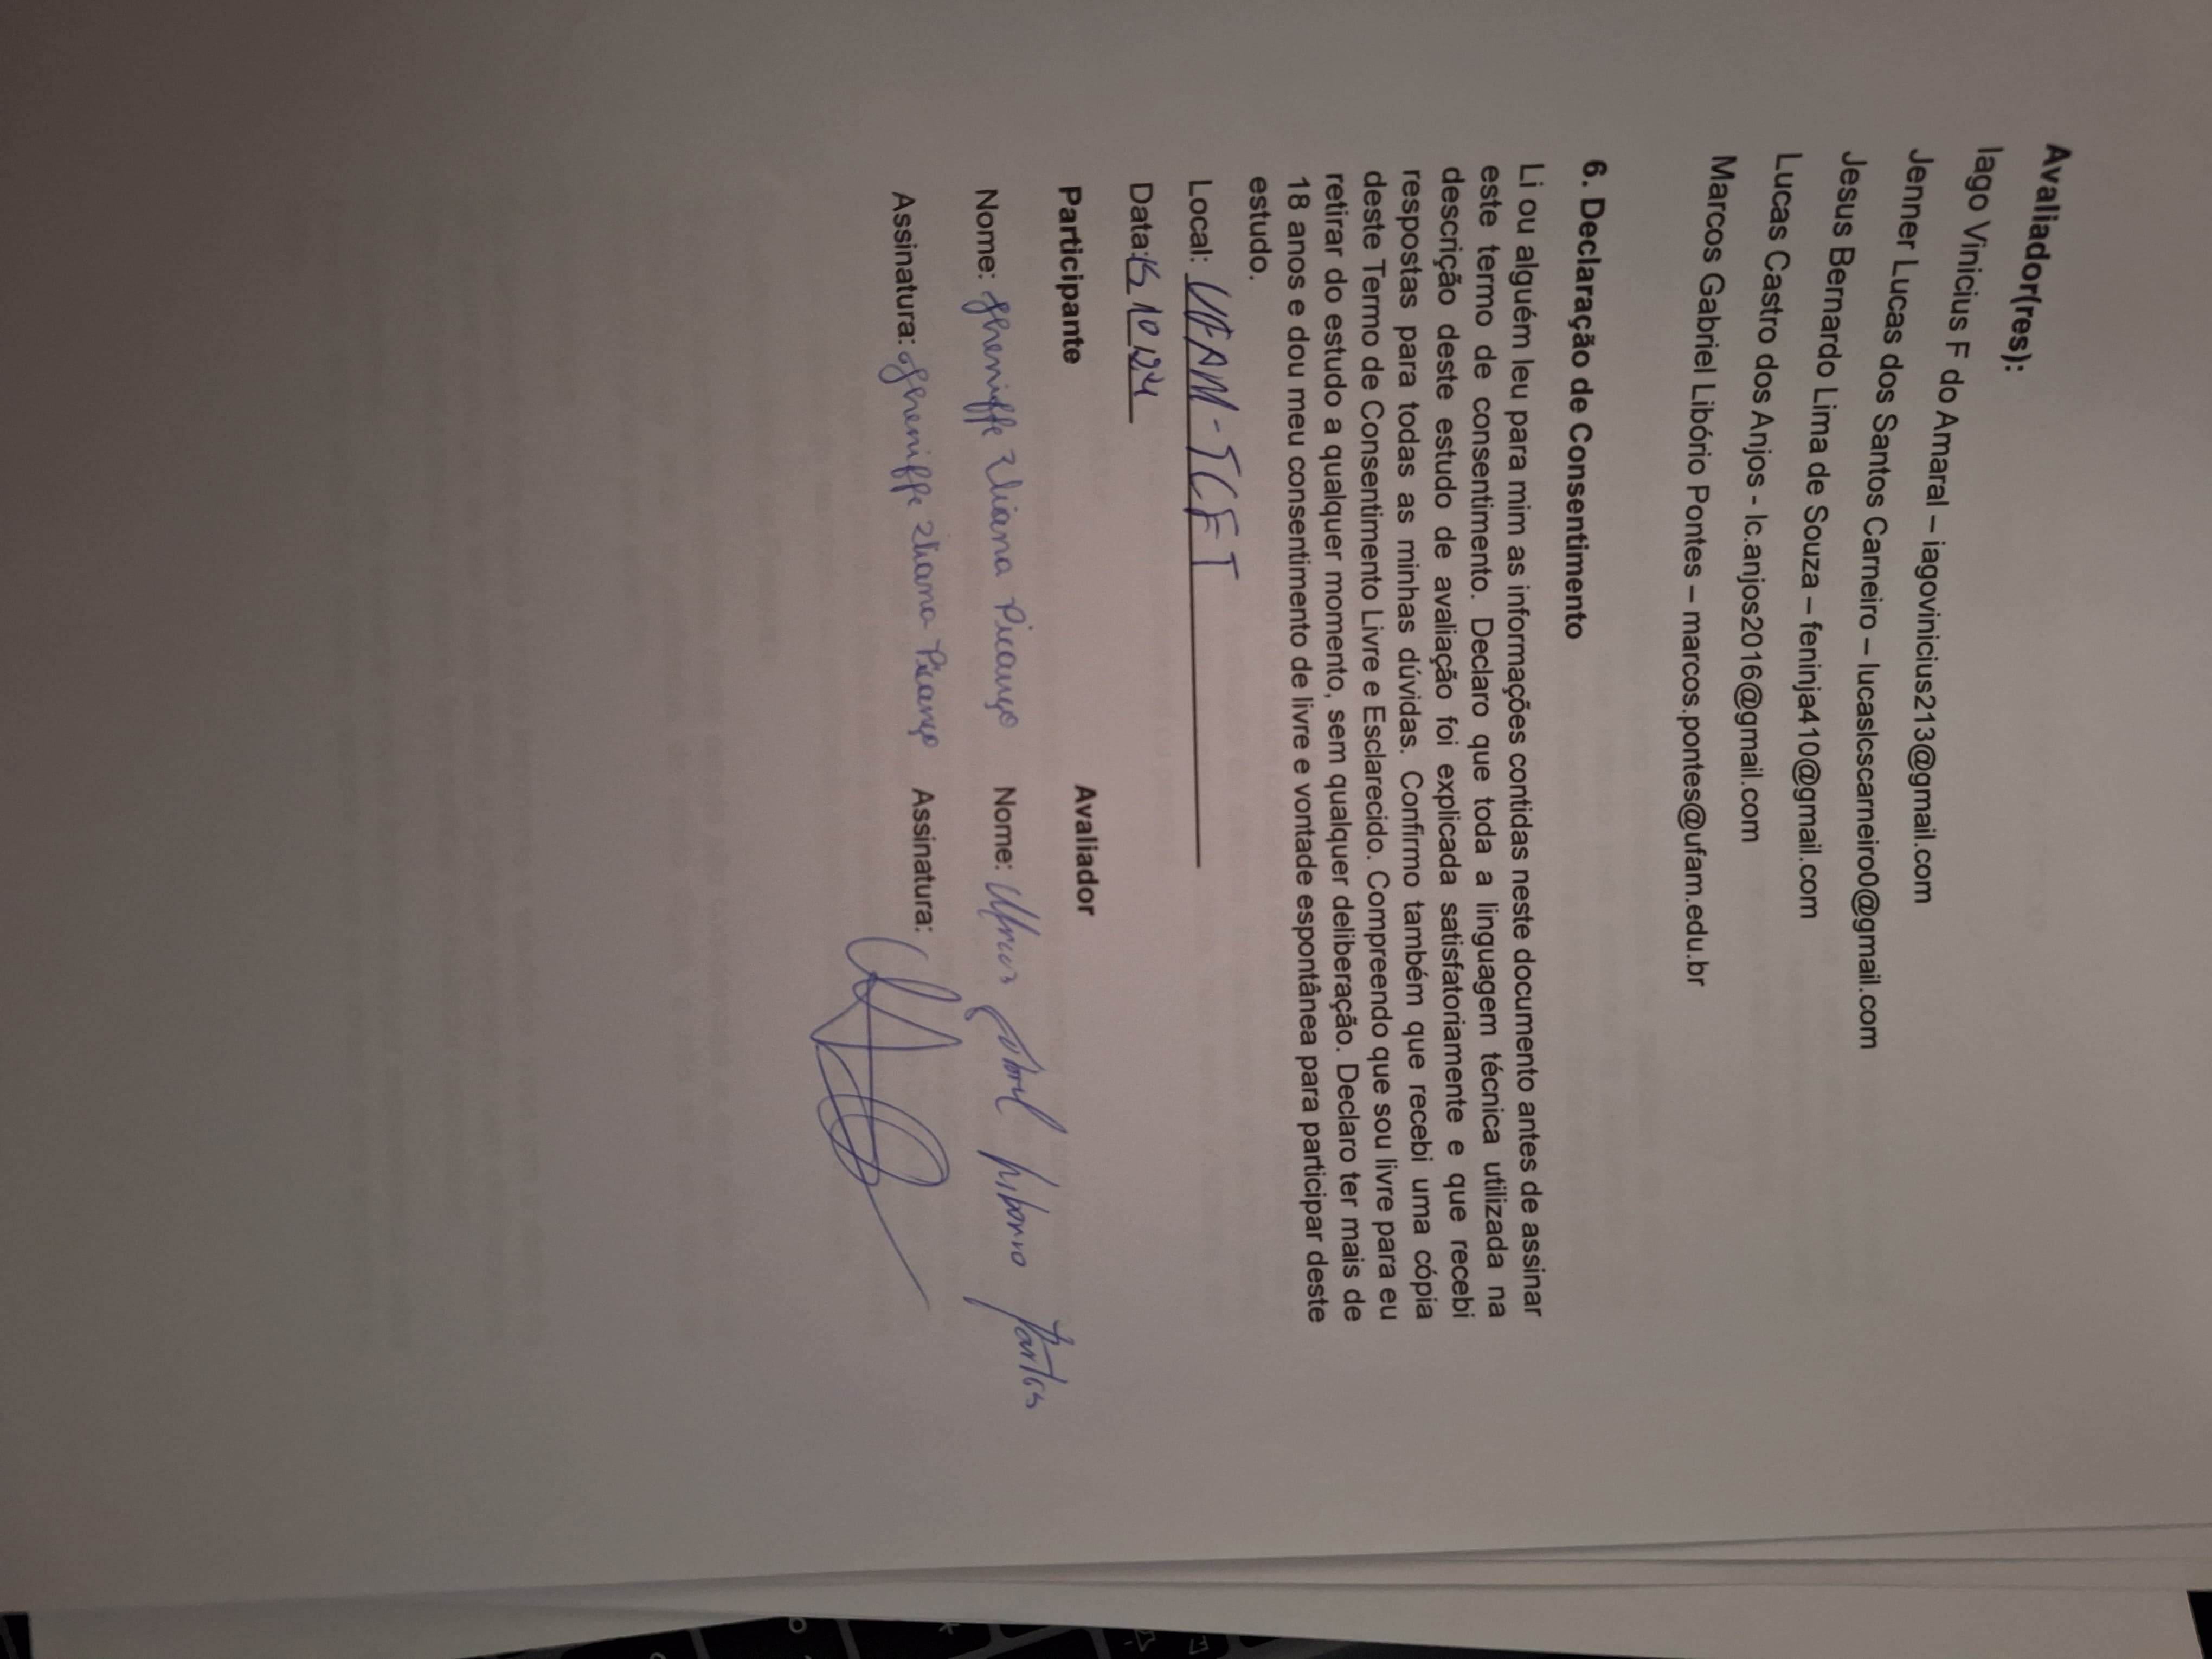 Avaliador(res):
Iago Vinicius F do Amaral – iagovinicius213@gmail.com
Jenner Lucas dos Santos Carneiro – lucaslcscarneiro0@gmail.com
Jesus Bernardo Lima de Souza – feninja410@gmail.com
Lucas Castro dos Anjos - lc.anjos2016@gmail.com
Marcos Gabriel Libório Pontes – marcos.pontes@ufam.edu.br
6. Declaração de Consentimento
Li ou alguém leu para mim as informações contidas neste documento antes de assinar
este termo de consentimento. Declaro que toda a linguagem técnica utilizada na
descrição deste estudo de avaliação foi explicada satisfatoriamente e que recebi
respostas para todas as minhas dúvidas. Confirmo também que recebi uma cópia
deste Termo de Consentimento Livre e Esclarecido. Compreendo que sou livre para eu
retirar do estudo a qualquer momento, sem qualquer deliberação. Declaro ter mais de
18 anos e dou meu consentimento de livre e vontade espontânea para participar deste
estudo.
Local: UFAM-ICET
Data: 15/10/24
Participante Avaliador
Nome: Jheniffe Eliana Picanço Nome: Marcos Gabriel Liborio Pontes
Assinatura: Jheniffe Eliana Picanço Assinatura: